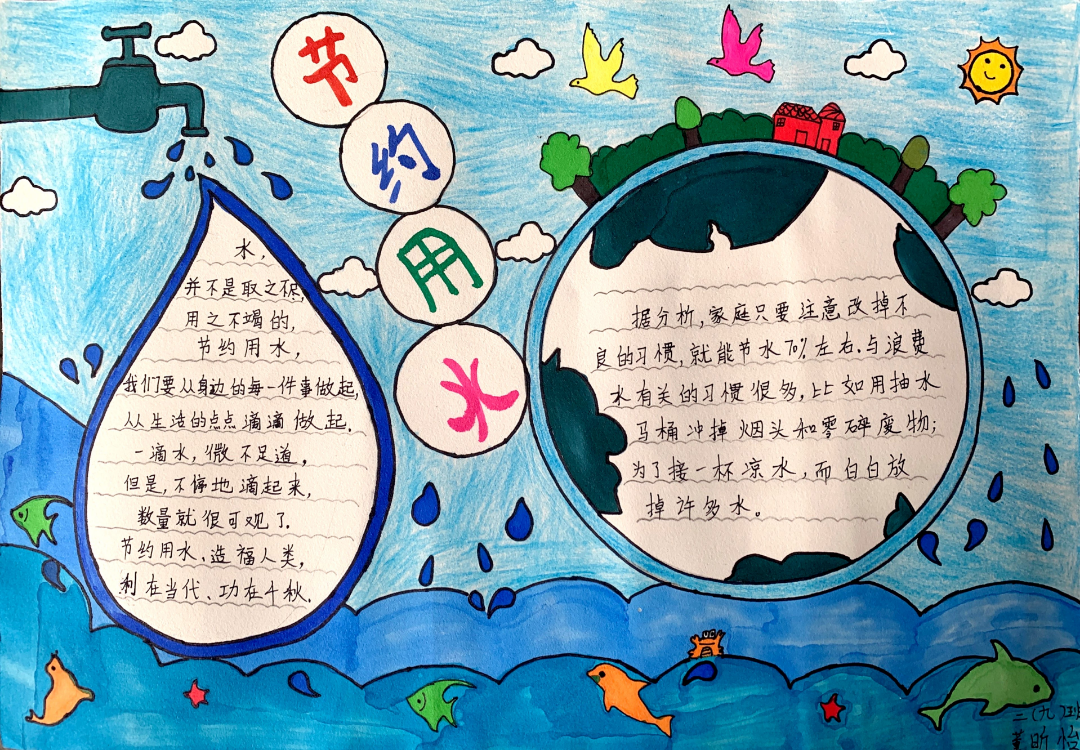 节
约
用
水
水,
并不是取之不尽,
用之不竭的,
节约用水,
我们要从身边的每一件事做起,
从生活的点点滴滴做起.
一滴水,微不足道,
但是,不停地滴起来,
数量就很可观了.
节约用水、造福人类,
利在当代、功在千秋.
据分析,家庭只要注意改掉不
良的习惯,就能节水70%左右.与浪费
水有关的习惯很多,比如用抽水
马桶冲掉烟头和零碎废物;
为了接一杯凉水,而白白放
掉许多水。
昕怡